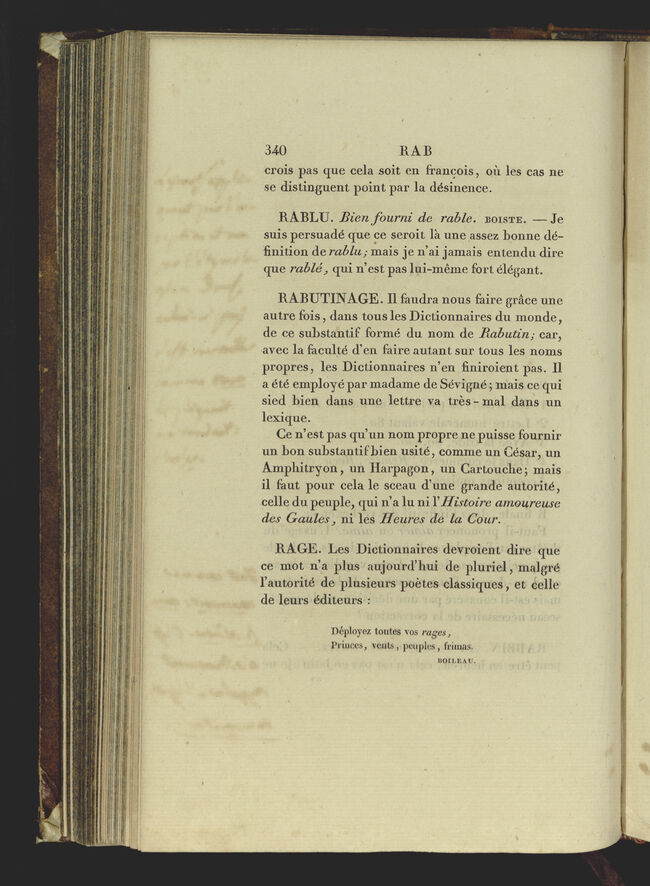 340 RAB
crois pas que cela soit en françois, où les cas ne
se distinguent point par la désinence.
RABLU. Bien fourni de rable. BOISTE. — Je
suis persuadé que ce seroit là une assez bonne dé-
finition de rablu; mais je n'ai jamais entendu dire
que rablé, qui n'est pas lui-même fort élégant.
RABUTINAGE. Il faudra nous faire grâce une
autre fois, dans tous les Dictionnaires du monde,
de ce substantif formé du nom de Rabutin; car,
avec la faculté d'en faire autant sur tous les noms
propres, les Dictionnaires n'en finiroient pas. Il
a été employé par madame de Sévigné; mais ce qui
sied bien dans une lettre va très-mal dans un
lexique.
Ce n'est pas qu'un nom propre ne puisse fournir
un bon substantif bien usité, comme un César, un
Amphitryon, un Harpagon, un Cartouche; mais
il faut pour cela le sceau d'une grande autorité,
celle du peuple, qui n'a lu ni l'Histoire amoureuse
des Gaules, ni les Heures de la Cour.
RAGE. Les Dictionnaires devroient dire que
ce mot n'a plus aujourd'hui de pluriel, malgré
l'autorité de plusieurs poètes classiques, et celle
de leurs éditeurs :
Déployez toutes vos rages,
Princes, vents, peuples, frimas.
BOILEAU.